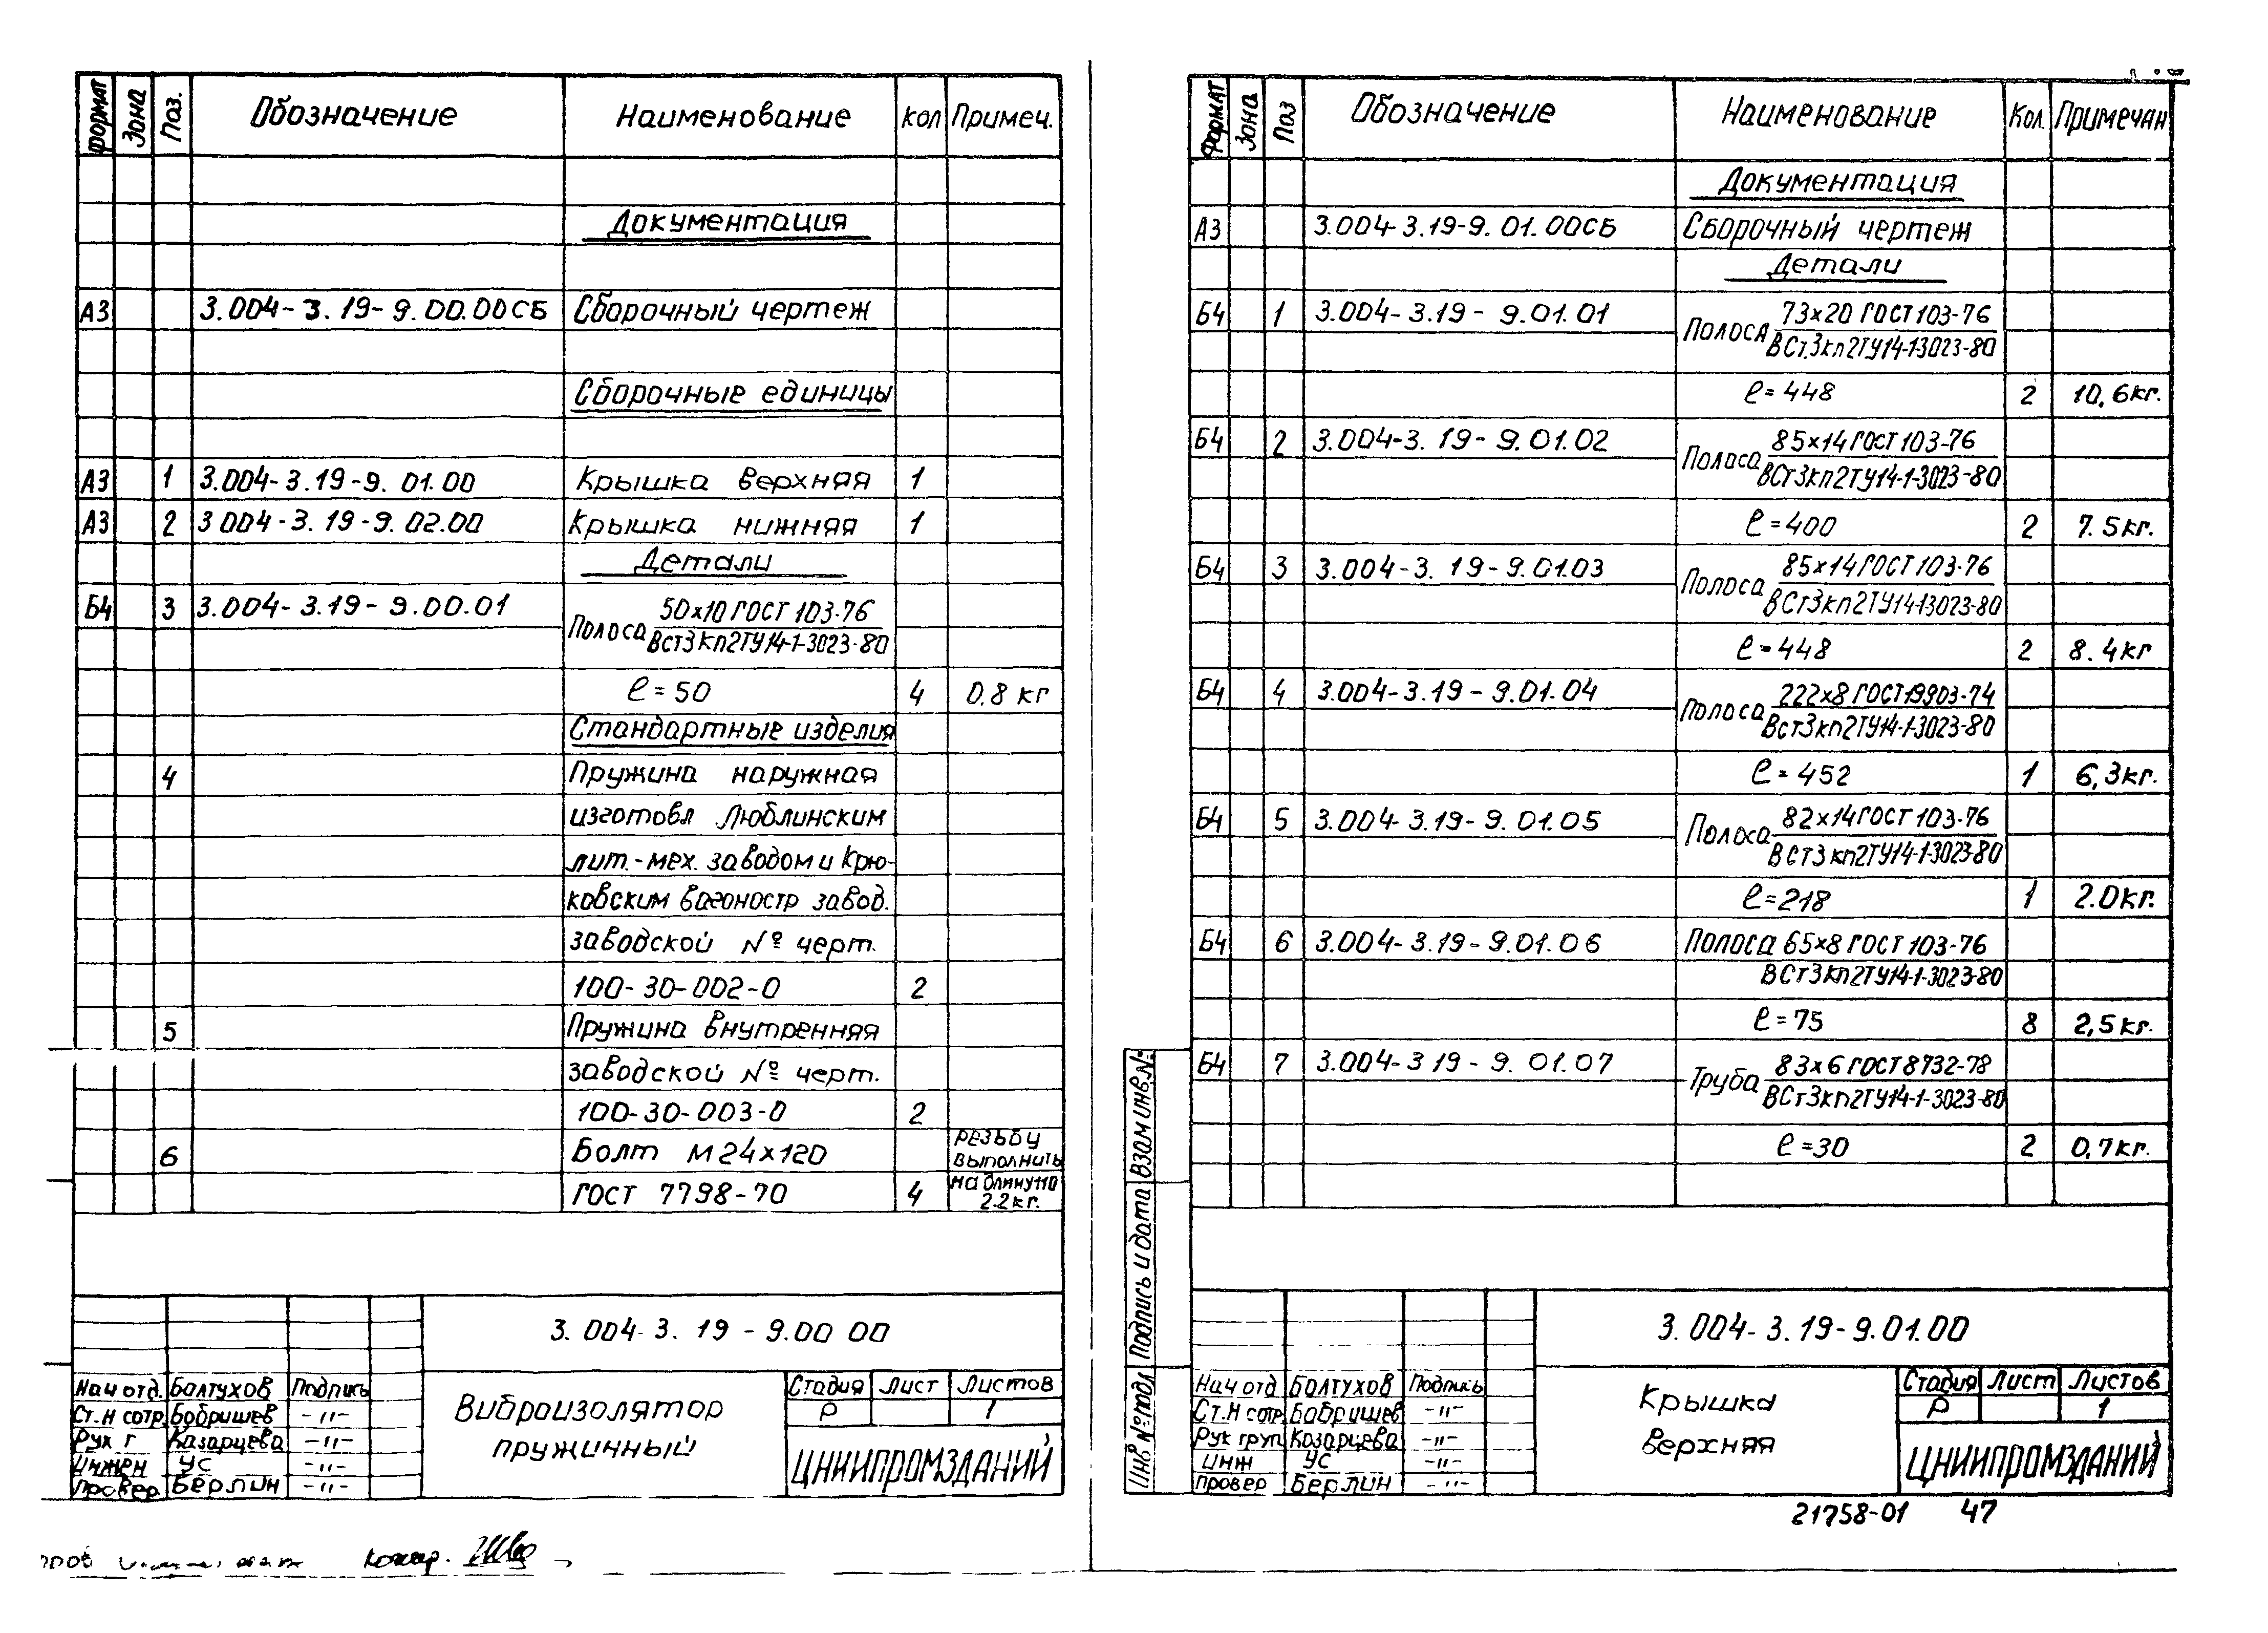 Формат Зона Поз. Обозначение Наименование Кол Примеч.
Документация
А3 3.004-3.19-9.00.00СБ Сборочный чертеж
Сборочные единицы
А3 1 3.004-3.19-9.01.00 Крышка верхняя 1
А3 2 3 004-3.19-9.02.00 Крышка нижняя 1
Детали
Б4 3 3.004-3.19-9.00.01 Полоса 50х10 ГОСТ 103-76
ВСт3кп2ТУ14-1-3023-80
ℓ=50 4 0.8 кг
Стандартные изделия
4 Пружина наружная
изготовл Люблинским
лит.-мех. заводом и Крю-
ковским вагоностр завод.
заводской № черт.
100-30-002-0 2
5 Пружина внутренняя
заводской № черт.
100-30-003-0 2
6 Болт М24х120 резьбу
выполнить
ГОСТ 7798-70 4 на длину 110
2.2 кг.
3.004-3.19-9.00 00
Нач отд. Балтухов Подпись
Ст.н сотр Бобришев -"-
Рук г Казарцева -"-
Инжен УС -"-
Провер Берлин -"-
Виброизолятор
пружинный
Стадия Лист Листов
Р 1
ЦНИИПРОМЗДАНИЙ
Копир.
Формат Зона Поз Обозначение Наименование Кол. Примечан
Документация
А3 3.004-3.19-9.01.00СБ Сборочный чертеж
Детали
Б4 1 3.004-3.19-9.01.01 Полоса 73х20 ГОСТ 103-76
ВСт.3кп2ТУ14-1-3023-80
ℓ=448 2 10,6кг.
Б4 2 3.004-3.19-9.01.02 Полоса 85х14 ГОСТ 103-76
ВСт3кп2ТУ14-1-3023-80
ℓ=400 2 7.5кг.
Б4 3 3.004-3.19-9.01.03 Полоса 85х14 ГОСТ 103-76
ВСт3кп2ТУ14-1-3023-80
ℓ=448 2 8.4кг
Б4 4 3.004-3.19-9.01.04 Полоса 222х8 ГОСТ 19903-74
ВСт3кп2ТУ14-1-3023-80
ℓ=452 1 6,3кг.
Б4 5 3.004-3.19-9.01.05 Полоса 82х14 ГОСТ 103-76
ВСт3кп2ТУ14-1-3023-80
ℓ=218 1 2.0кг.
Б4 6 3.004-3.19-9.01.06 Полоса 65х8 ГОСТ 103-76
ВСт3кп2ТУ14-1-3023-80
ℓ=75 8 2,5кг.
Б4 7 3.004-3 19-9.01.07 Труба 83х6 ГОСТ 8732-78
ВСт3кп2ТУ14-1-3023-80
ℓ=30 2 0,7кг.
Инв № подл Подпись и дата Взам инв.№
3.004-3.19-9.01.00
Нач отд Балтухов Подпись
Ст.н сотр Бобришев -"-
Рук груп Козарцева -"-
Инж УС -"-
Провер Берлин -"-
Крышка
верхняя
Стадия Лист Листов
Р 1
ЦНИИПРОМЗДАНИЙ
21758-01 47